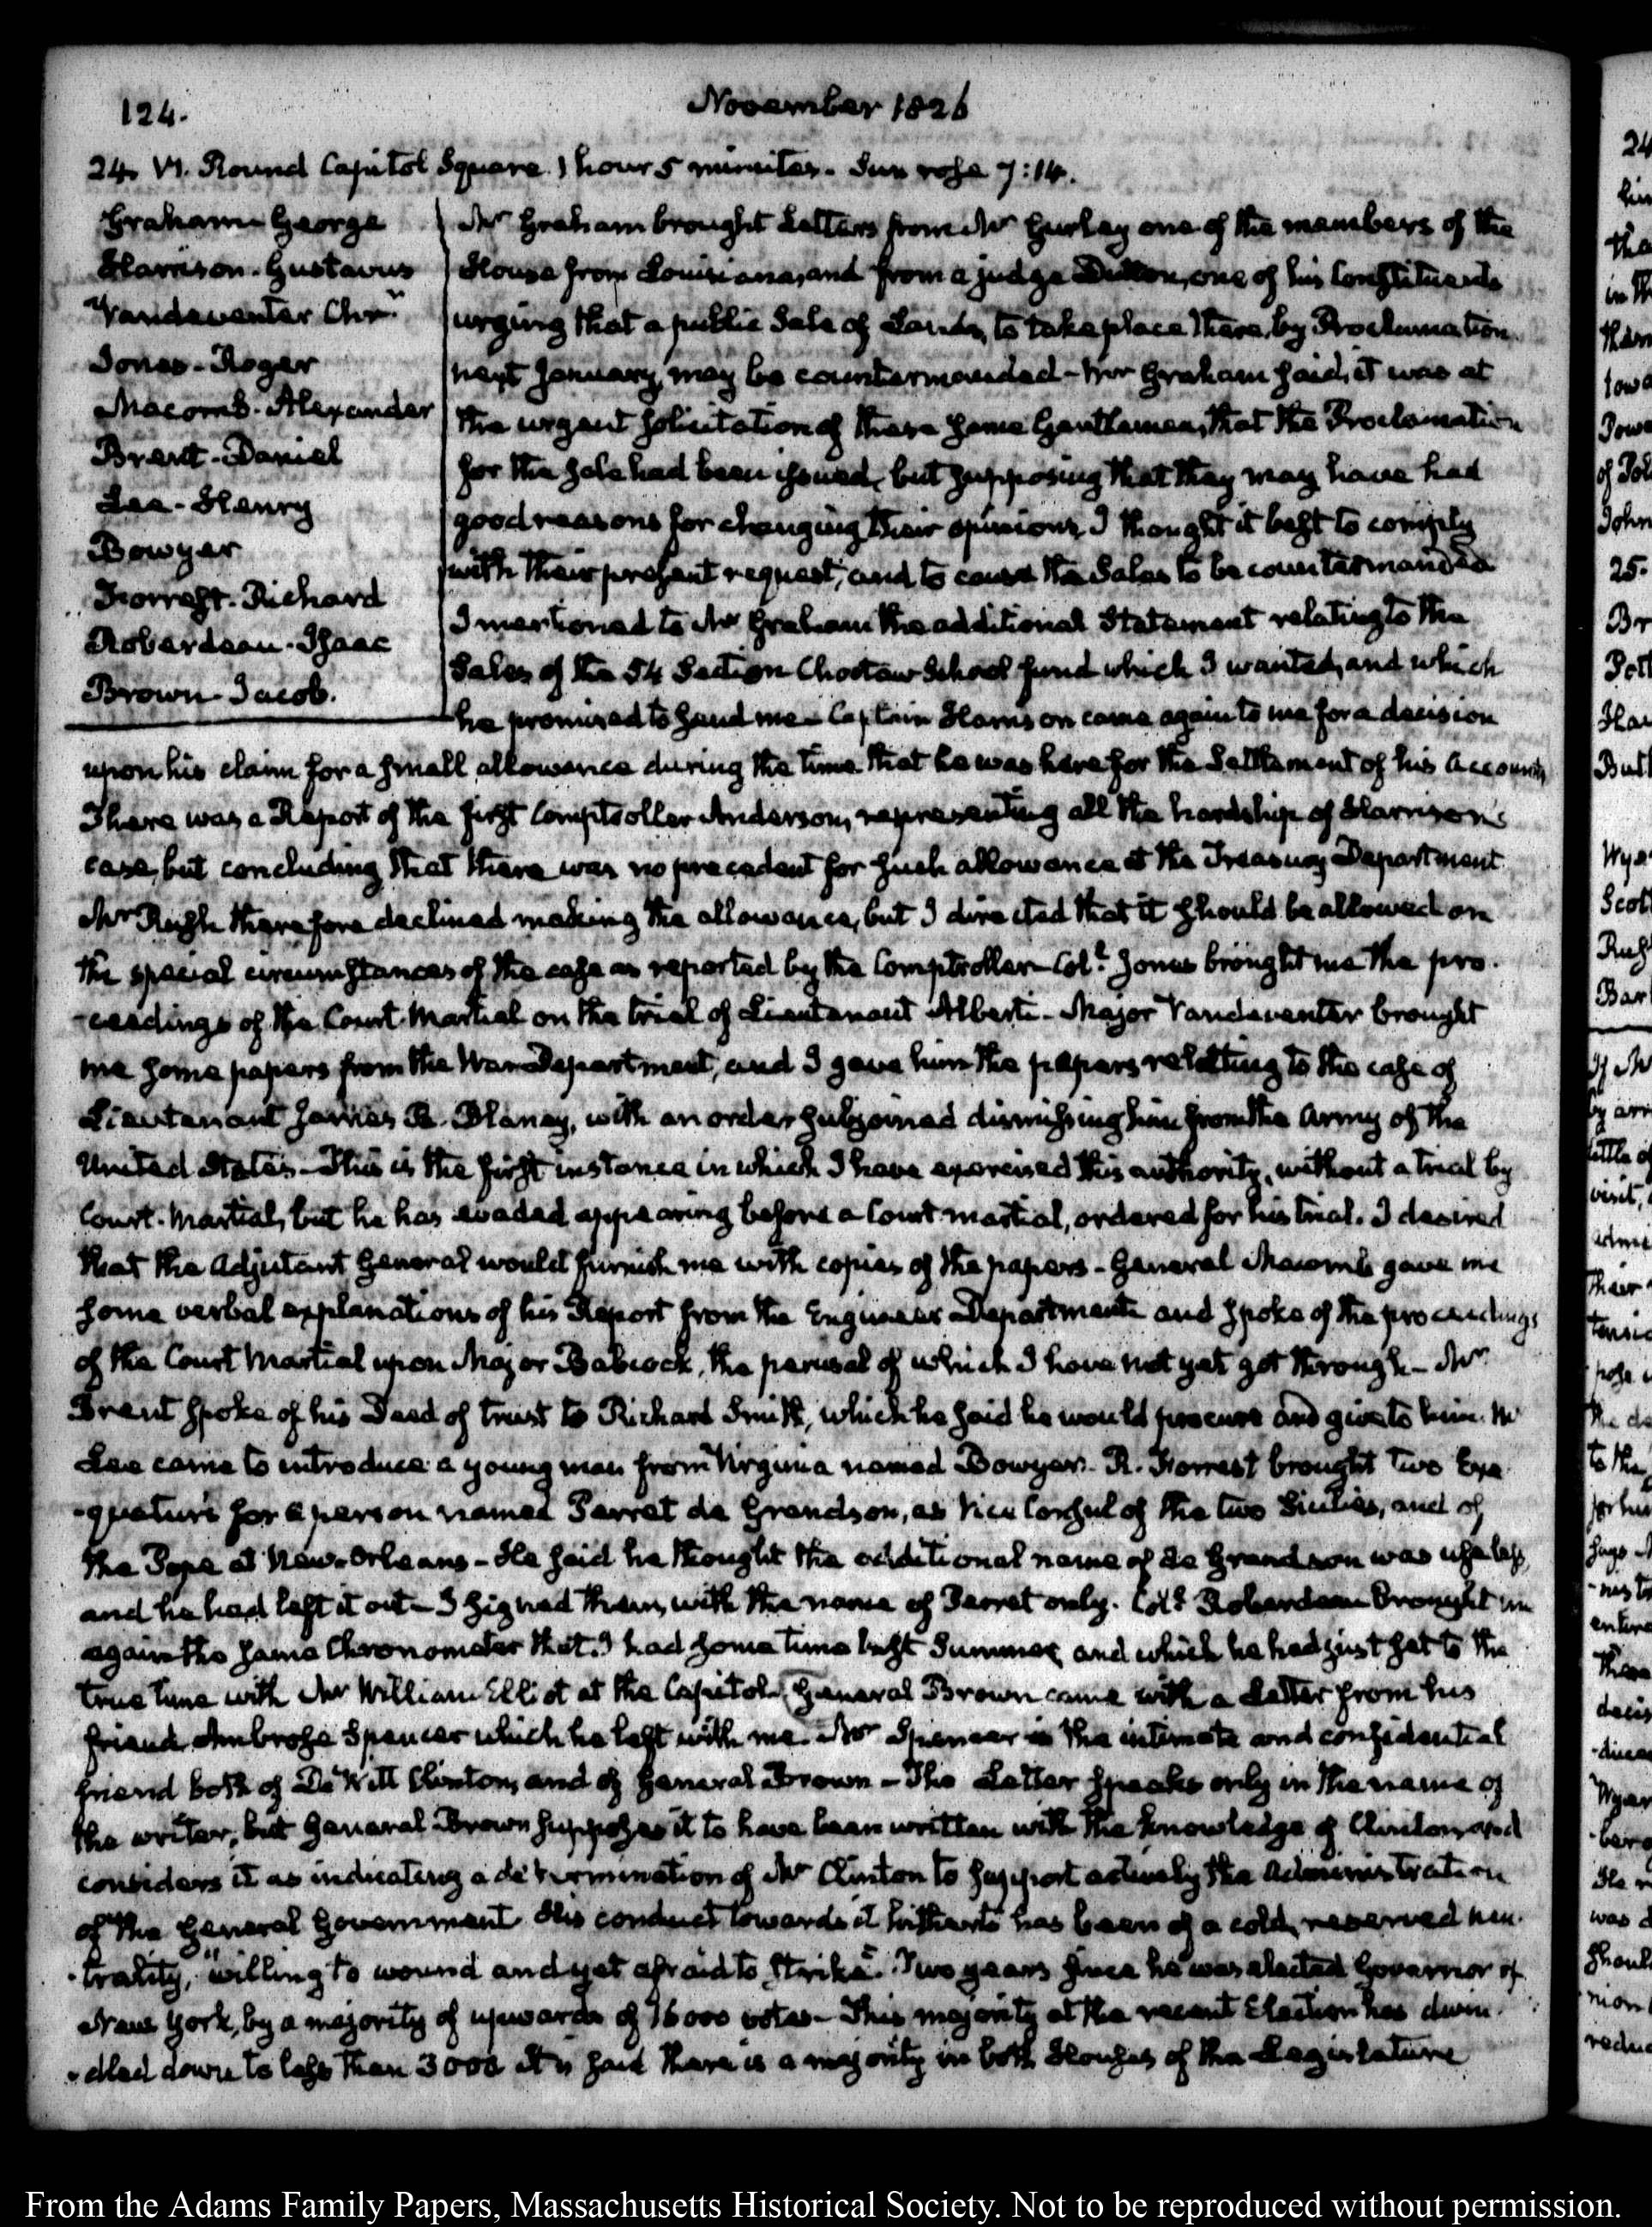 124.
November 1826
24. VI. Round Capitol Square 1 hour 5 minutes. Sun rose 7:14.
Graham George
Harrison. Gustavus
Vandeventer Chrr.
Jones. Roger
Macomb. Alexander
Brent. Daniel
Lee. Henry
Bowyer
Forrest. Richard
Roberdeau. Isaac
Brown Jacob.
Mr Graham brought Letters from Mr Gurley one of the members of the
House from Louisiana, and from a judge Dutton, one of his Constituents
urging that a public Sale of Lands, to take place there, by Proclamation
next January, may be countermanded – Mr Graham said, it was at
the urgent solicitation of these same Gentlemen, that the Proclamation
for the sale had been issued, but supposing that they may have had
good reasons for changing their opinions, I thought it best to comply
with their present request, and to cause the Sales to be countermanded
I mentioned to Mr Graham the additional Statement relating to the
Sales of the 54 Section Choctaw School fund which I wanted, and which
he promised to send me – Captain Harrison came again to me for a decision
upon his claim for a small allowance during the time that he was here for the Settlement of his Accounts,
There was a Report of the first Comptroller Anderson, representing all the hardship of Harrison's
case, but concluding that there was no precedent for such allowance at the Treasury Department.
Mr Rush therefore declined making the allowance, but I directed that it should be allowed on
the special circumstances of the case as reported by the Comptroller – Coll. Jones brought me the pro-
-ceedings of the Court-Martial on the trial of Lieutenant Alberti – Major Vandeventer brought
me some papers from the War Department, and I gave him the papers relating to the case of
Lieutenant James R. Blaney, with an order subjoined dismissing him from the Army of the
United States – This is the first instance in which I have exercised this authority, without a trial by
Court-Martial, but he has evaded appearing before a Court martial, ordered for his trial. I desired
that the Adjutant General would furnish me with copies of the papers – General Macomb gave me
some verbal explanations of his Report from the Engineer Department and spoke of the proceedings
of the Court Martial upon Major Babcock, the perusal of which I have not yet got through – Mr
Brent spoke of his Deed of trust to Richard Smith, which he said he would procure and give to him. Mr
Lee came to introduce a young man from Virginia named Bowyer – R. Forrest brought two Exe-
-quaturs for a person named Parret de Grandson, as Vice Consul of the two Sicilies, and of
the Pope at New-Orleans – He said he thought the additional name of de Grandson was useless,
and he had left it out – I signed them, with the name of Parret only. Coll. Roberdeau brought me
again the same Chronometer that I had some time last Summer, and which he had just set to the
true time with Mr William Elliot at the Capitol. General Brown came with a Letter from his
friend Ambrose Spencer which he left with me. Mr Spencer is the intimate and confidential
friend both of De Witt Clinton, and of General Brown – The Letter speaks only in the name of
the writer, but General Brown supposes it to have been written with the knowledge of Clinton, and
considers it as indicating a determination of Mr Clinton to support actively the Administration
of the General Government. His conduct towards it hitherto has been of a cold, reserved neu-
-trality, "willing to wound and yet afraid to strike." Two years since he was elected Governor of
New York, by a majority of upwards of 16000 votes – This majority at the recent Election has dwin-
-dled down to less than 3000 It is said there is a majority in both Houses of the Legislature
From the Adams Family Papers, Massachusetts Historical Society. Not to be reproduced without permission.